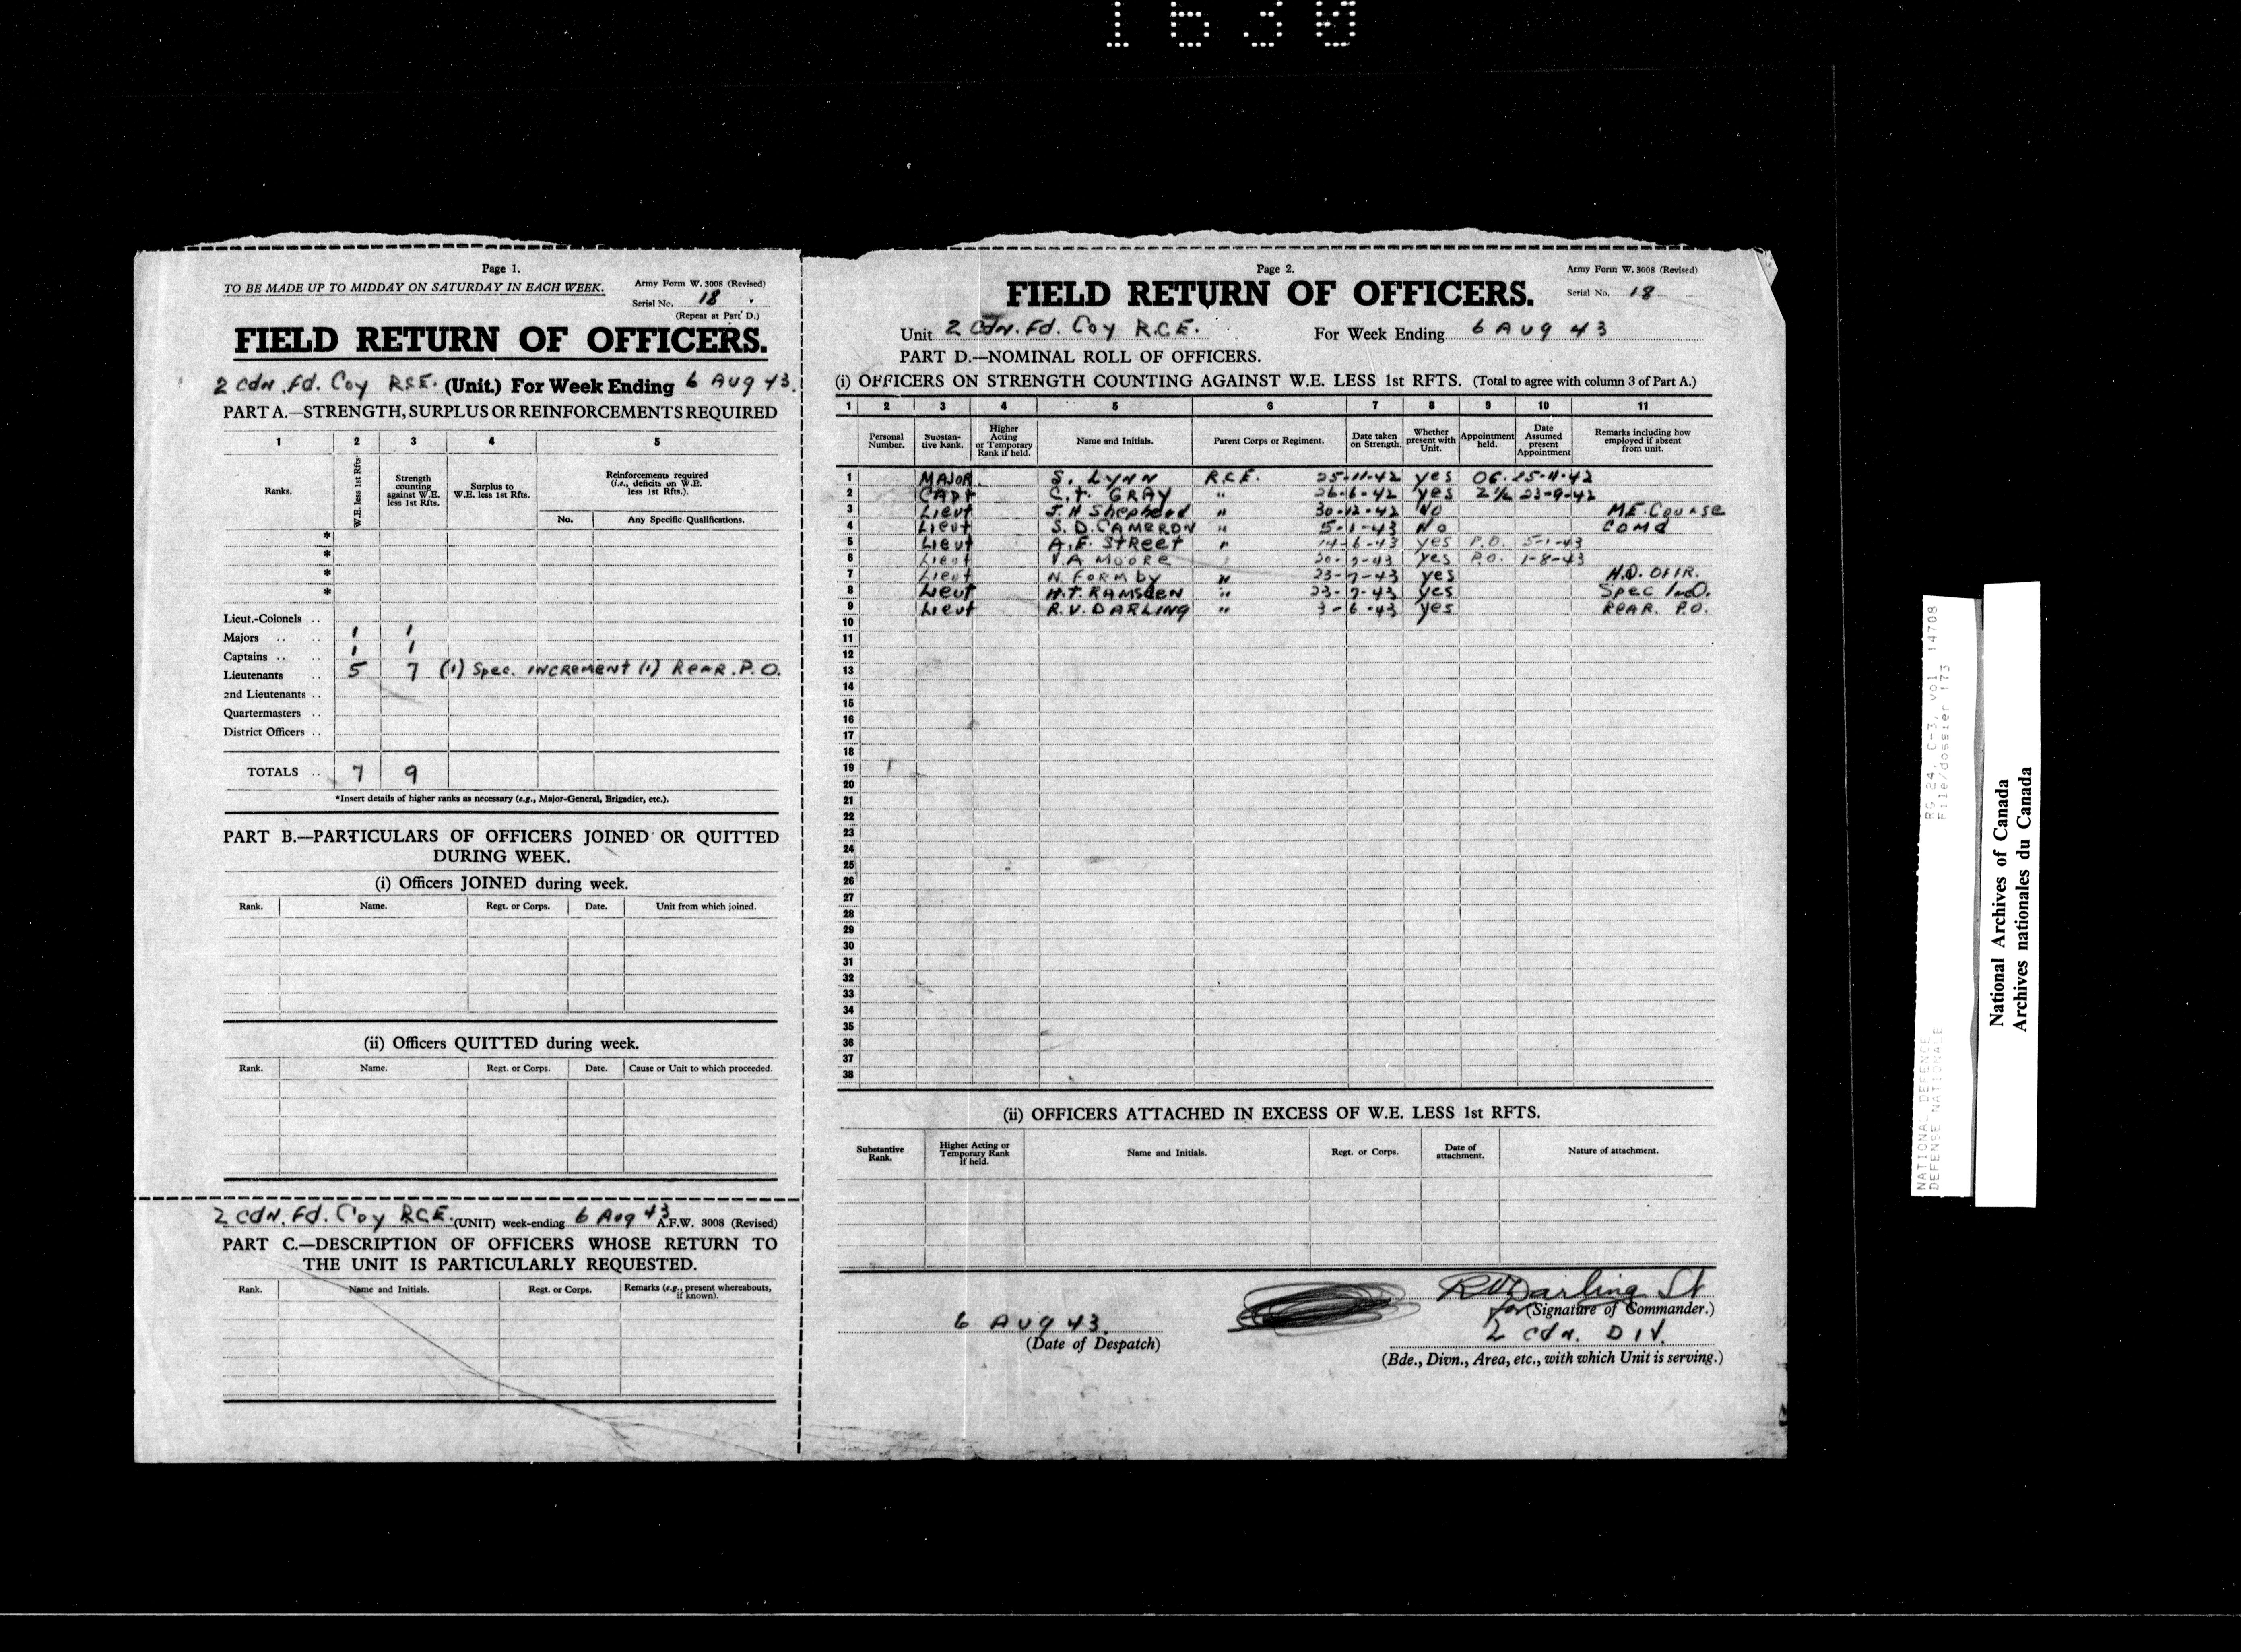 1630
Page 1.
TO BE MADE UP TO MIDDAY ON SATURDAY IN EACH WEEK.
Army Form W. 3008 (Revised)
Serial No. 18
(Repeat at Part D.)
FIELD RETURN OF OFFICERS.
2 Cdn. Fd. Coy R.C.E. (Unit.) For Week Ending 6 AUG 43.
PART A.—STRENGTH, SURPLUS OR REINFORCEMENTS REQUIRED
1 2 3 4 5
Ranks.
W.E. less 1st Rfts.
Strength counting against W.E. less 1st Rfts.
Surplus to W.E. less 1st Rfts.
Reinforcements required (i.e., deficits on W.E. less 1st Rfts.).
No. Any Specific Qualifications.
*
*
*
*
Lieut.-Colonels ..
Majors .. .. 1 1
Captains .. .. 1 1
Lieutenants .. 5 7 (1) Spec. INCREMENT (1) REAR. P.O.
2nd Lieutenants ..
Quartermasters ..
District Officers ..
TOTALS .. 7 9
*Insert details of higher ranks as necessary (e.g., Major-General, Brigadier, etc.).
PART B.—PARTICULARS OF OFFICERS JOINED OR QUITTED
DURING WEEK.
(i) Officers JOINED during week.
Rank. Name. Regt. or Corps. Date. Unit from which joined.
(ii) Officers QUITTED during week.
Rank. Name. Regt. or Corps. Date. Cause or Unit to which proceeded.
2 Cdn. Fd. Coy R.C.E. (UNIT) week-ending 6 Aug 43 A.F.W. 3008 (Revised)
PART C.—DESCRIPTION OF OFFICERS WHOSE RETURN TO
THE UNIT IS PARTICULARLY REQUESTED.
Rank. Name and Initials. Regt. or Corps. Remarks (e.g., present whereabouts, if known).
Page 2.
Army Form W. 3008 (Revised)
FIELD RETURN OF OFFICERS.
Serial No. 18
Unit 2 Cdn. Fd. Coy R.C.E. For Week Ending 6 AUG 43
PART D.—NOMINAL ROLL OF OFFICERS.
(i) OFFICERS ON STRENGTH COUNTING AGAINST W.E. LESS 1st RFTS. (Total to agree with column 3 of Part A.)
1 2 3 4 5 6 7 8 9 10 11
Personal Number.
Substantive Rank.
Higher Acting or Temporary Rank if held.
Name and Initials.
Parent Corps or Regiment.
Date taken on Strength.
Whether present with Unit.
Appointment held.
Date Assumed present Appointment
Remarks including how employed if absent from unit.
1 MAJOR. S. LYNN R.C.E. 25-11-42 yes OC. 25-11-42
2 CAPT C.T. GRAY " 26-6-42 yes 2 I/C 23-9-42
3 Lieut J.H Shepherd " 30-12-42 NO M.E. Course
4 Lieut S. D. CAMERON " 5-1-43 NO COMD
5 Lieut A.E. STREET " 14-6-43 yes P.O. 5-1-43
6 Lieut V.A MOORE " 20-7-43 yes P.O. 1-8-43
7 Lieut N. FORMby " 23-7-43 yes H.Q. OFFR.
8 Lieut H.T. RAMSDEN " 23-7-43 yes Spec
9 Lieut R. V. DARLING " 3-6-43 yes REAR. P.O.
10
11
12
13
14
15
16
17
18
19
20
21
22
23
24
25
26
27
28
29
30
31
32
33
34
35
36
37
38
(ii) OFFICERS ATTACHED IN EXCESS OF W.E. LESS 1st RFTS.
Substantive Rank.
Higher Acting or Temporary Rank if held.
Name and Initials.
Regt. or Corps.
Date of attachment.
Nature of attachment.
RV Darling Lt
for (Signature of Commander.)
6 AUG 43.
(Date of Despatch)
2 Cdn. DIV.
(Bde., Divn., Area, etc., with which Unit is serving.)
NATIONAL DEFENCE
DEFENSE NATIONALE
RG 24, C-3, vol. 14708
File/dossier 173
National Archives of Canada
Archives nationales du Canada